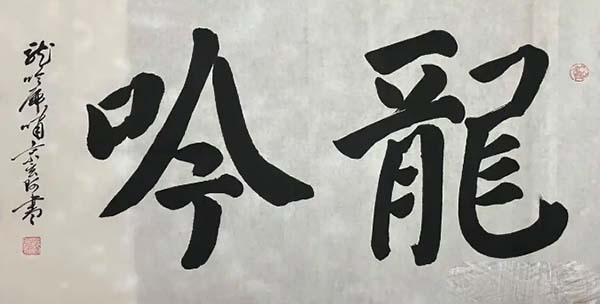 龍吟
龍吟虎嘯 書